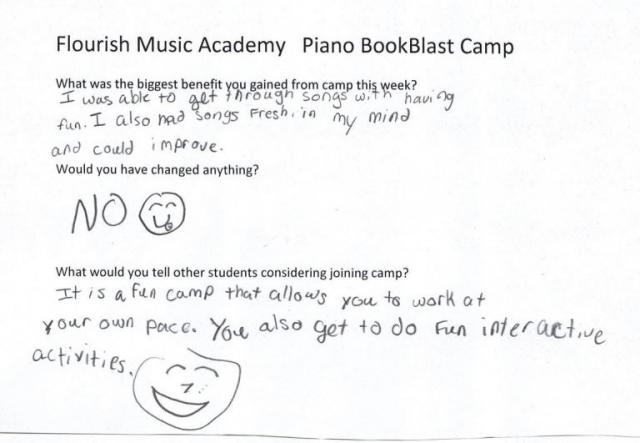 Flourish Music Academy   Piano BookBlast Camp
What was the biggest benefit you gained from camp this week?
I was able to get through songs with having
fun. I also had songs Fresh. in my mind
and could improve.
Would you have changed anything?
NO
What would you tell other students considering joining camp?
It is a fun camp that allows you to work at
your own pace. You also get to do Fun interactive
activities.